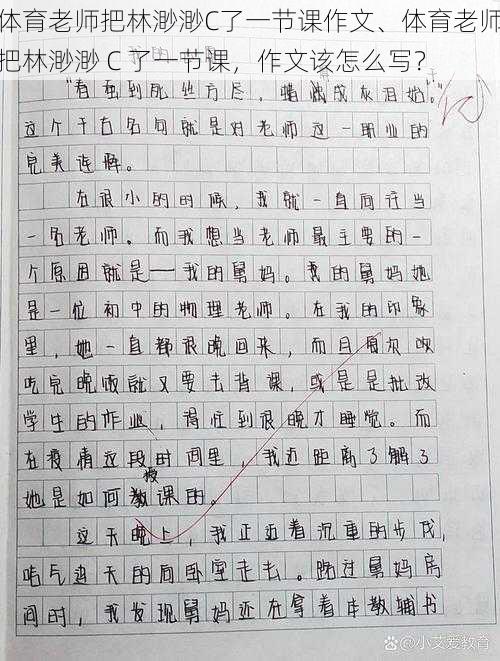 体育老师把林渺渺C了一节课作文、体育老师
把林渺渺 C 了一节课，作文该怎么写？
"春蚕到死丝方尽，蜡炬成灰泪始干。"
这个千古名句就是对老师这一职业的
完美诠释。
在很小的时候，我就一直向往当
一名老师。而我想当老师最主要的一
个原因就是——我的舅妈。我的舅妈她
是一位初中的物理老师。在我的印象
里，她一直都很晚回来，而且每次收
吃完晚饭就又要去背课，或是是批改
学生的作业，得忙到很晚才睡觉。而
在疫情这段时间里，我近距离了解了
她是如何教课的。
这天晚上，我正迈着沉重的步伐，
唉气连天的向卧室走去。路过舅妈房
间时，我发现舅妈还在拿着本教辅书
小艾爱教育